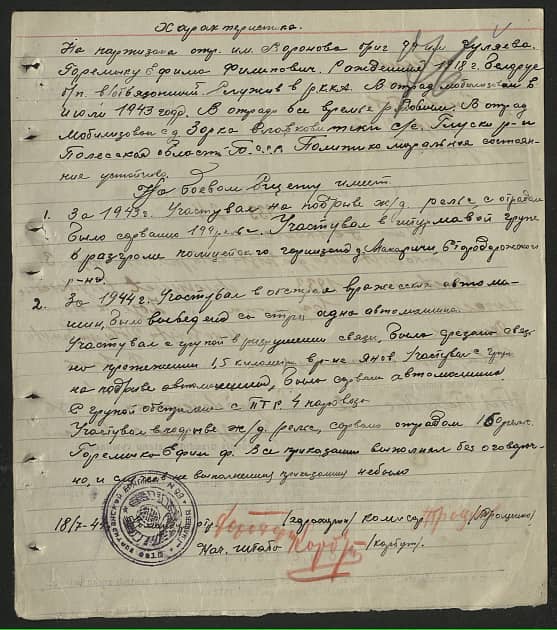 Характеристика.
На партизана отр. им. Воронова бриг 37 им Гуляева.
Горемыку Ефима Филипович. Рождения 1918 г. Белорус
б/п. Служив в РККА. В отряд мобилизован в
июли 1943 года. В отряде все время рядовым. В отряд
мобилизован с д. Зорка с/с. Глуски р-н
Полесской области Б.С.С.Р. Политико моральное состоян-
ние устойчиво.
На боевом счету имеет
1. За 1943 г. Участвувал на подрыве ж/д. рельс, с отрядом
было сорвано 199 рельс. Участвувал в штурмавой групе
в разгроме полицейского гарнизона д. Макаричи, Стародорожского
р-на.
2. За 1944 г. Участвувал в обстреле вражеских автома-
шин, было выведено со строя одна автомашина.
Участвувал с групой в разрушении связи, было срезано связи
на протежении 1,5 километра в р-не Янов. Участвувал с групой
на подрыве автомашины, было сорвано автомашина
С групой обстреляно с ПТР. 4 паровоза
Участвувал в подрыве ж/д. рельс, сорвано отрядом 16 рельс.
Горемыко Ефим Ф. Все приказания выполнял без оговороч-
но, и случаев не выполнения приказания небыло
18/7-4 отр /здрадцов/ комисар
Нач. штаба Корбут /корбут/.